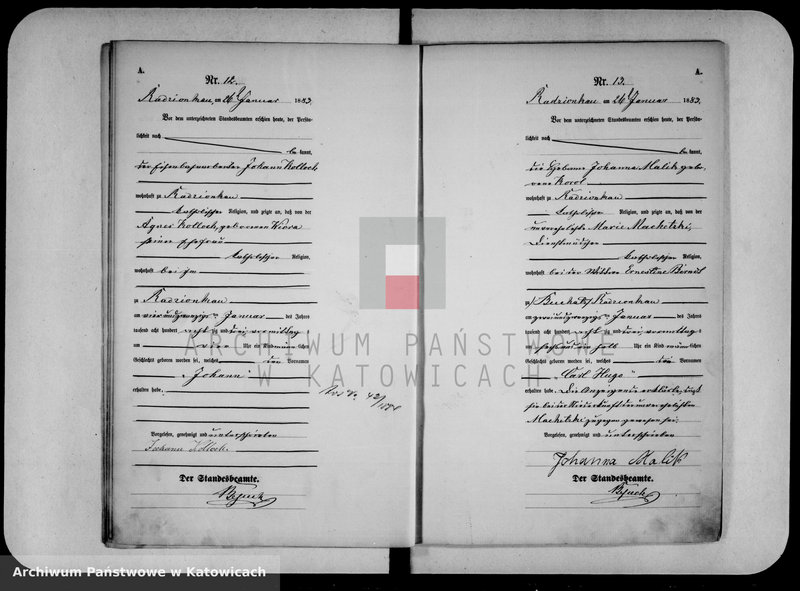 A.
Nr. 12.
Radzionkau, am 26 Januar 1883.
Vor dem unterzeichneten Standesbeamten erschien heute, der Persön-
lichkeit nach
be kannt,
der Eisenbahnarbeiter Johann Kolloch
wohnhaft zu Radzionkau
katholischer Religion, und zeigte an, daß von der
Agnes Kolloch, geborenen Wiora
seiner Ehefrau
katholischer Religion,
wohnhaft bei ihm
zu Radzionkau
am vierundzwanzigsten Januar des Jahres
tausend acht hundert achtzig und drei vormittag s
um vier Uhr ein Kind männlichen
Geschlecht geboren worden sei, welches den Vornamen
"Johann"
erhalten habe.
Vorgelesen, genehmigt und unterschrieben
Johann Kolloch.
Der Standesbeamte.
A.
Nr. 13.
Radzionkau am 26 Januar 1883.
Vor dem unterzeichneten Standesbeamten erschien heute, der Persön-
lichkeit nach
be kannt,
die Hebamme Johanna Malik gebo-
rene Korol
wohnhaft zu Radzionkau
katholischer Religion, und zeigte an, daß von der
unverehelichte Marie Machetzki,
Dienstmädchen
katholischer Religion,
wohnhaft bei der Wittwe Ernestine
zu Radzionkau
am zweiundzwanzigsten Januar des Jahres
tausend acht hundert achtzig und drei vormittag s
um ein halb Uhr ein Kind männlichen
Geschlecht geboren worden sei, welches den Vornamen
"Carl Hugo"
erhalten habe. Die Anzeigende erklärte, daß
sie bei der Niederkunft der unverehelichten
Machetzki zugegen gewesen sei.
Vorgelesen, genehmigt und unterschrieben
Johanna Malik
Der Standesbeamte.
ARCHIWUM PAŃSTWOWE
W KATOWICACH
Archiwum Państwowe w Katowicach